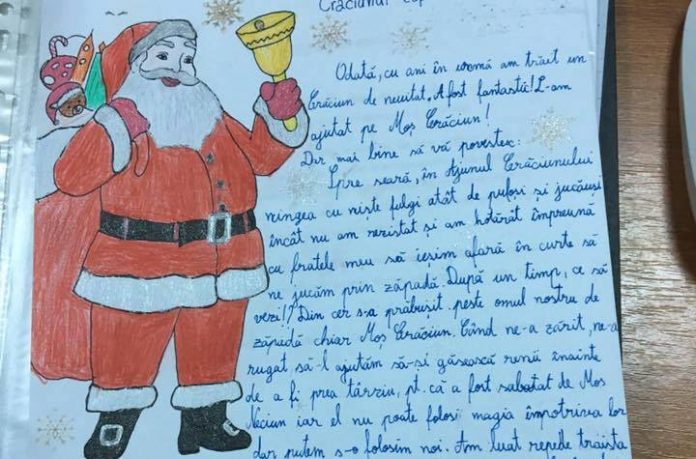 Crăciunul cop
Odată, cu ani în urmă am trăit un
Crăciun de neuitat. A fost fantastic! L-am
ajutat pe Moș Crăciun!
Dar mai bine să vă povestesc:
Spre seară, în Ajunul Crăciunului
ningea cu niște fulgi atât de pufoși și jucăuși
încât nu am rezistat și am hotărât împreună
cu fratele meu să ieșim afară în curte să
ne jucăm prin zăpadă. După un timp, ce să
vezi!? Din cer s-a prăbușit peste omul nostru de
zăpadă chiar Moș Crăciun. Când ne-a zărit, ne-a
rugat să-l ajutăm să-și găsească renii înainte
de a fi prea târziu, pt. că a fost sabotat de Moș
Neciun iar el nu poate folosi magia împotriva lor
dar putem s-o folosim noi. Am luat repede traista